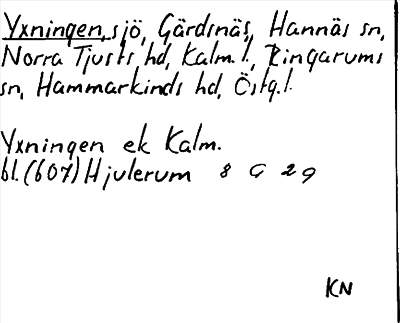 Yxningen, sjö, Gärdsnäs, Hannäs sn,
Norra Tjusts hd, Kalm.l., Ringarums
sn, Hammarkinds hd, Östg.l.
Yxningen ek Kalm.
bl. (607) Hjulerum 8 G 2 g
KN